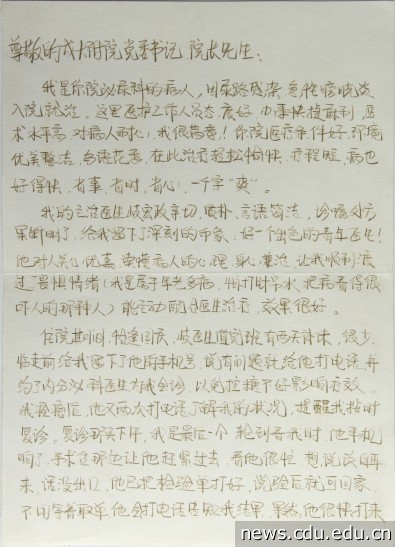 尊敬的成大附院党委书记 院长先生:
我是你院泌尿科的病人,因尿路感染、急性膀胱炎
入院就治。这里医护工作人员态度好,办事快捷麻利,医
术水平高,对病人耐心,我很满意!你院医疗条件好,环境
优美整洁,鸟语花香,在此治疗轻松愉快,疗程短,病也
好得快,省事、省时、省心,一个字“爽”。
我的主治医生岐宏政亲切、质朴、言语简洁,诊断处方
果断明了,给我留下了深刻的印象:好一个出色的青年医生!
他对人关心优喜,重性病人的心理、身心兼治,让我顺利度
过“畏惧情绪(我是属于年老多病,怕打财吊水,把病看得很
吓人的那种人)能主动配合医生治疗,效果很好。
住院其间,恰逢国庆,岐医生值完班有两天补休,很少,
临走前给我留下了他的手机号,说有问题就给他打电话,并
约了内分泌科医生为我会诊,以免担搁不好影响疗效。
我痊癒后,他又两次打电话了解我的状况,提醒我按时
复诊。复诊那天下午,我是最后一个,轮到看我时,他手机
响了,手术室那边让他赶紧过去,看他很忙,想说改日再
来,话没出口,他已把检验单打好,说验后就可回家,
不用等着取单,他会打电话告知我结果,果然,他很快打来
news.cdu.edu.cn